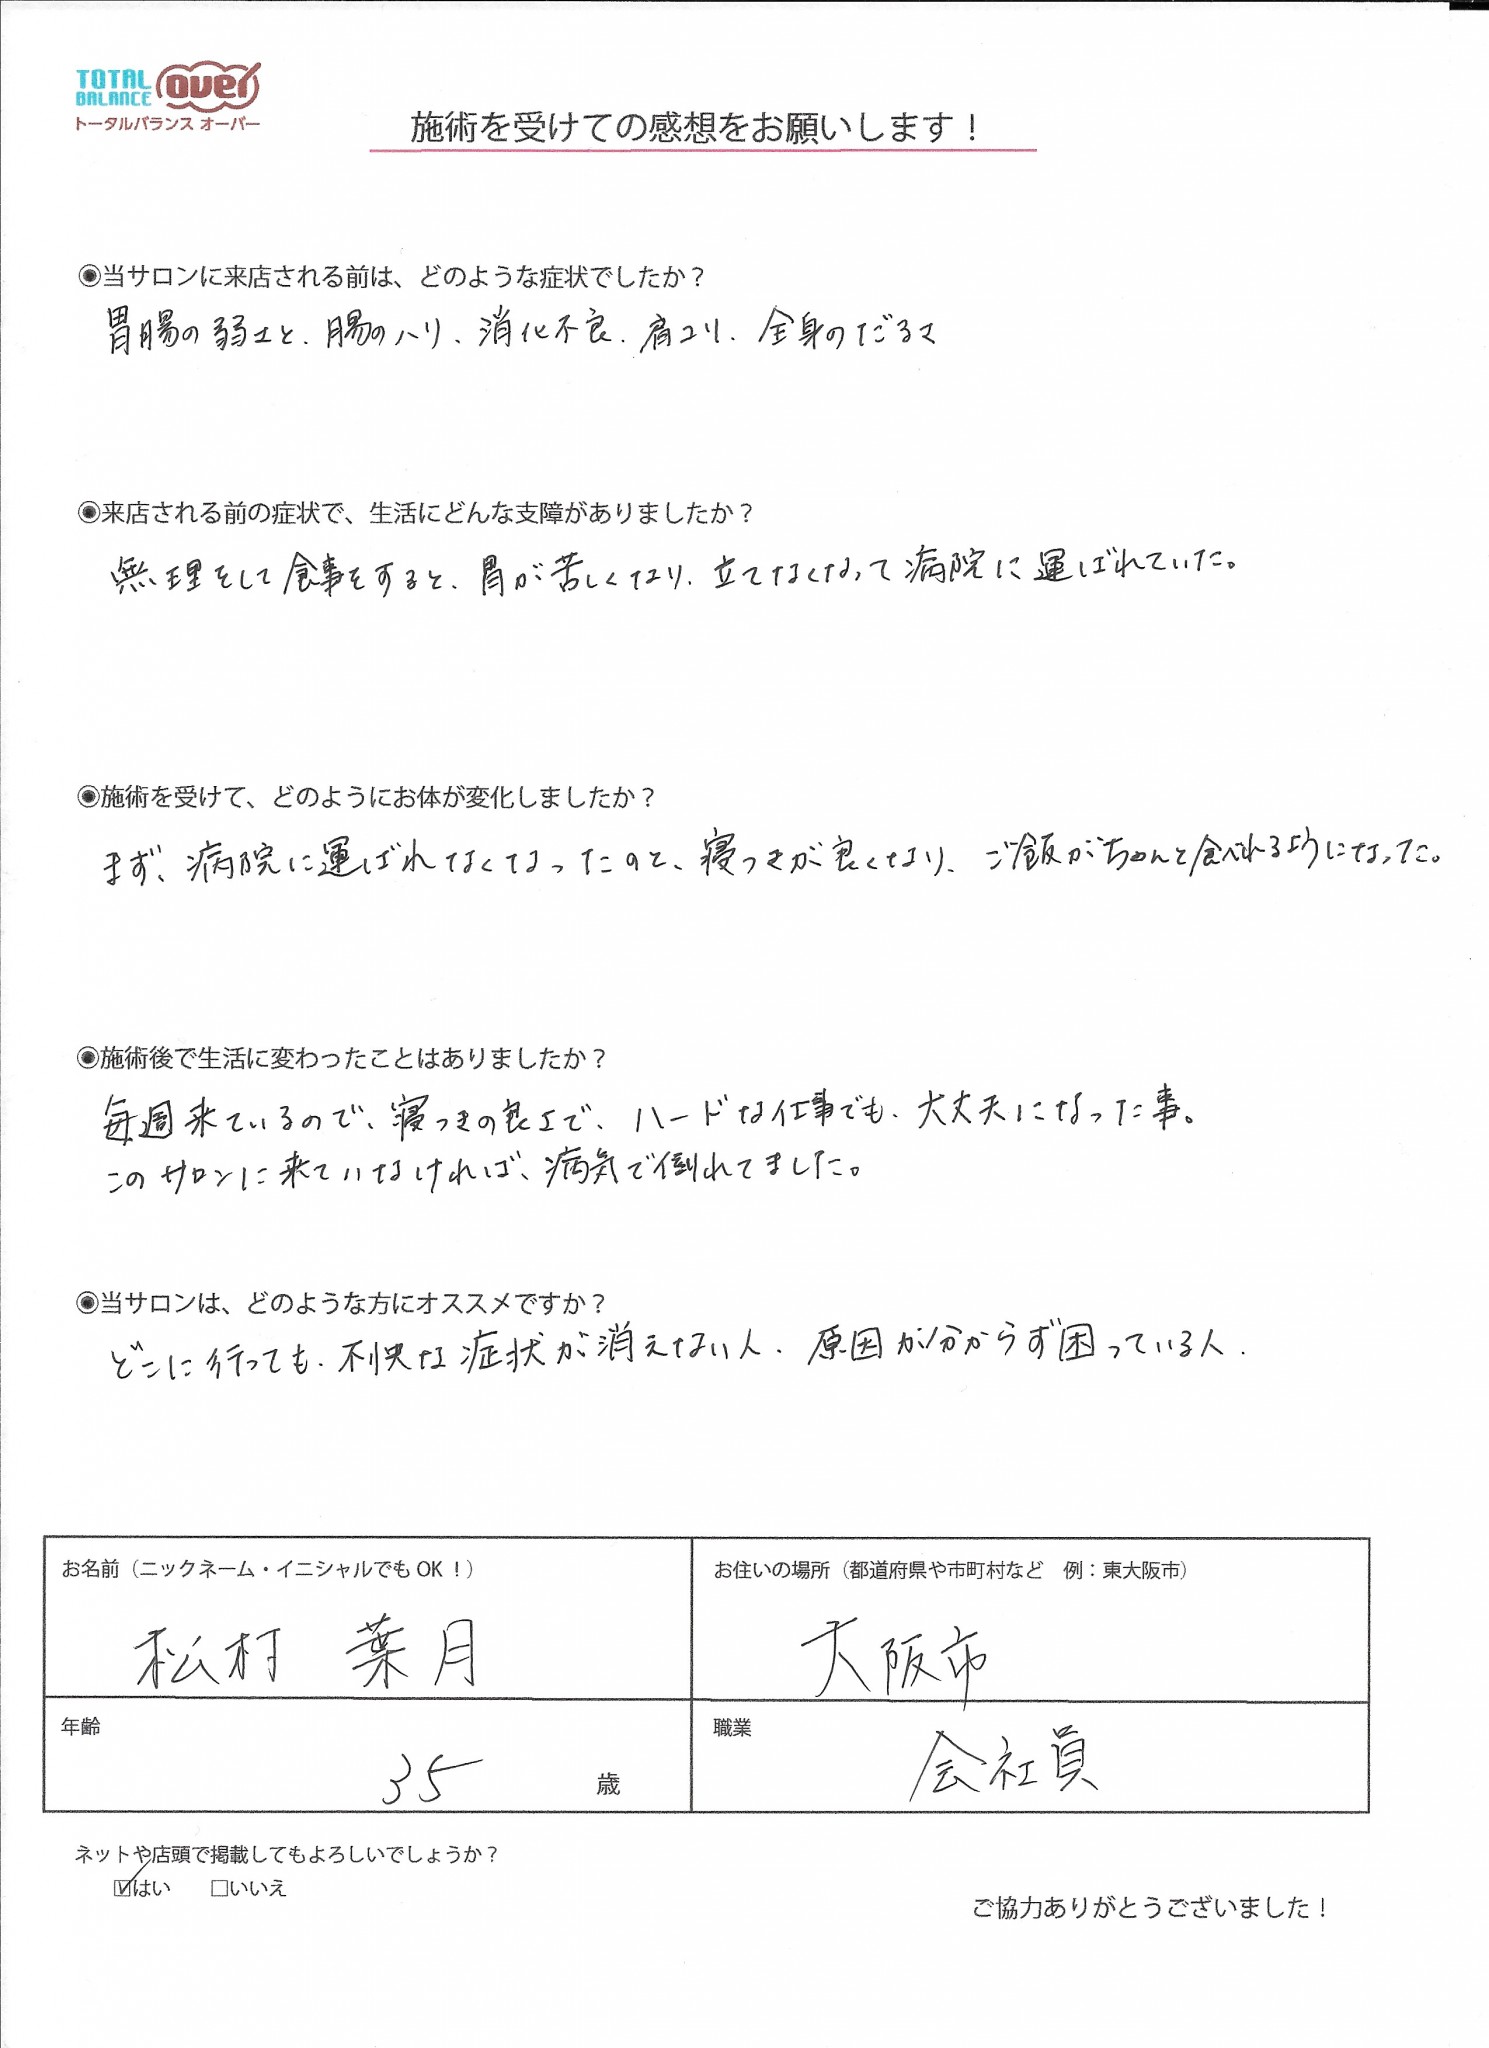 TOTAL BALANCE over
トータルバランス オーバー
施術を受けての感想をお願いします！
◉当サロンに来店される前は、どのような症状でしたか？
胃腸の弱さと、腸のハリ、消化不良、肩コリ、全身のだるさ
◉来店される前の症状で、生活にどんな支障がありましたか？
無理をして食事をすると、胃が苦しくなり、立てなくなって病院に運ばれていた。
◉施術を受けて、どのようにお体が変化しましたか？
まず、病院に運ばれなくなったのと、寝つきが良くなり、ご飯がちゃんと食べれるようになった。
◉施術後で生活に変わったことはありましたか？
毎週来ているので、寝つきの良さで、ハードな仕事でも、大丈夫になった事。
このサロンに来ていなければ、病気で倒れてました。
◉当サロンは、どのような方にオススメですか？
どこに行っても、不快な症状が消えない人、原因が分からず困っている人．
お名前（ニックネーム・イニシャルでもOK！）
松村 葉月
お住いの場所（都道府県や市町村など　例：東大阪市）
大阪市
年齢
35 歳
職業
会社員
ネットや店頭で掲載してもよろしいでしょうか？
☑はい □いいえ
ご協力ありがとうございました！